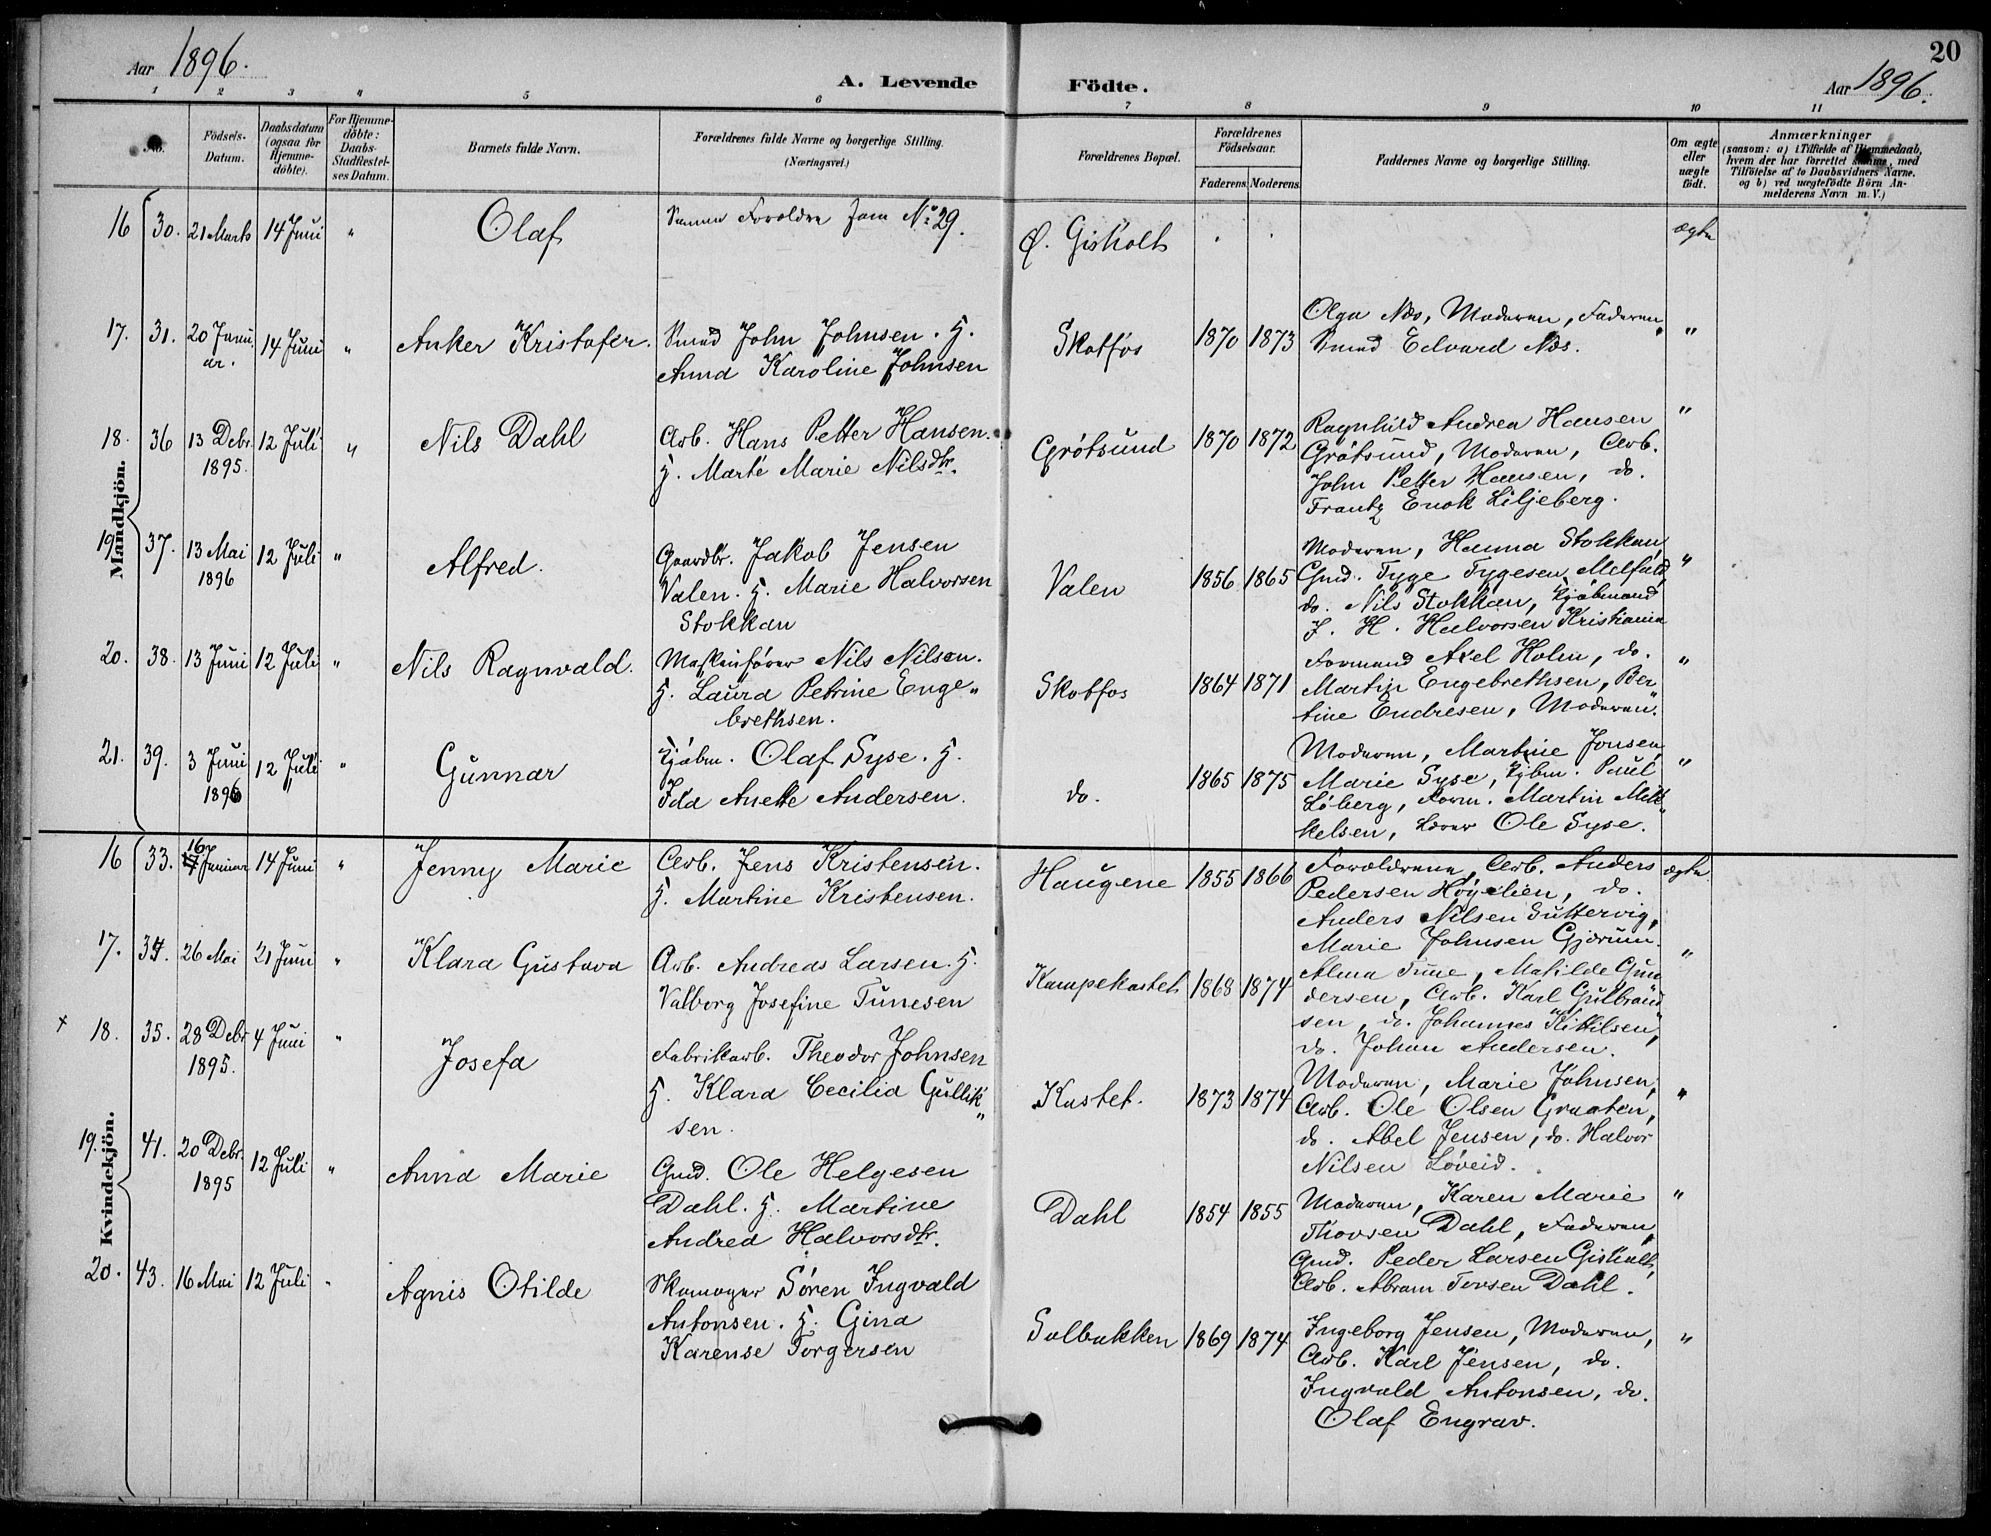 20
Aar 1896.
A. Levende Födte.
Aar 1896.
1 2 3 4 5 6 7 8 9 10 11
No.
Födsels-Datum.
Daabsdatum (ogsaa for Hjemme-döbte).
For Hjemme-döbte: Daabs-Stadfæstel-ses Datum.
Barnets fulde Navn.
Forældrenes fulde Navne og borgerlige Stilling. (Næringsvei.)
Forældrenes Bopæl.
Forældrenes Födselsaar.
Faderens. Moderens.
Faddernes Navne og borgerlige Stilling.
Om ægte eller uægte födt.
Anmærkninger
(saasom: a) i Tilfælde af Hjemmedaab,
hvem der har forrettet samme, med
Tilföielse af to Daabsvidners Navne.
og b) ved uægtefödte Börn An-
melderens Navn m. V.)
Mandkjön.
16 30. 21 Marts 14 Juni " Olaf
Samme Forældre som No 29.
Ø. Gisholt . . ægte
17. 31. 20 Janu. ar. 14 Juni " Anker Kristofer.
Smed John Johnsen. H.
Anna Karoline Johnsen
Skotfos 1870 1873
Olga Næs, Moderen, Faderen,
Smed Edvard Næs. "
18. 36 13 Debr. 1895. 12 Juli " Nils Dahl
Arb. Hans Petter Hansen.
H. Marte Marie Nilsdtr.
Grótsund 1870 1872
Ragnhild Andrea Hansen
Grótsund, Moderen, Arb.
John Petter Hansen, do.
Frantz Enok Liljeberg. "
19 37. 13 Mai 1896 12 Juli " Alfred.
Gaardbr. Jakob Jensen
Valen. H. Marie Halvorsen
Stokkan
Valen 1856 1865
Moderen, Hanna Stokkan,
Gmd. Tyge Tygesen Melfald,
do. Nils Stokkan, Kjóbmand
J. H. Halvorsen Kristiania "
20. 38. 13 Juni 12 Juli " Nils Ragnvald.
Maskinfører Nils Nilsen.
H. Laura Petrine Enge"
brethsen.
Skotfos 1864 1871
Formand Axel Holm, do.
Martin Engebrethsen, Ber"
tine Endresen, Moderen. "
21. 39. 3 Juni 1896 12 Juli " Gunnar
Kjóbm. Olaf Syse. H.
Ida Anette Andersen.
do. 1865 1875
Moderen, Martine Jonsen,
Marie Syse, Kjbm. Paul
Lóberg, Form. Martin Mik"
kelsen, Lærer Ole Syse. "
Kvindekjön.
16 33. 16 Januar 14 Juni " Jenny Marie
Arb. Jens Kristensen.
H. Martine Kristensen.
Haugene 1855 1866
Forældrene, Arb. Anders
Pedersen Høgelien, do.
Anders Nilsen Guttervig,
Marie Johnsen Gjerum. ægte.
17. 34. 26 Mai 21 Juni " Klara Gustava
Arb. Andreas Larsen. H.
Valborg Josefine Tunesen
Kampekastet 1868 1874
Alma Tune, Matilde Gun"
dersen, Arb. Karl Gulbrand"
sen, do. Johannes Kittilsen,
do. Johan Andersen. "
x 18. 35. 28 Debr 1895. 4 Juni " Josefa
Fabrikarb. Theodor Johnsen
H. Klara Cecilia Gullik"
sen.
Kastet. 1873 1874
Moderen, Marie Johnsen,
Arb. Ole Olsen Graaten,
do. Abel Jensen, do. Halvor
Nilsen Lóveid. "
19. 41. 20 Debr. 1895 12 Juli " Anna Marie
Gmd. Ole Helgesen
Dahl. H. Martine
Andrea Halvorsdtr.
Dahl 1854 1855
Moderen, Karen Marie
Thorsen Dahl, Faderen,
Gmd. Peder Larsen Gisholt,
Arb. Abram Torsen Dahl. "
20. 43. 16 Mai 12 Juli " Agnis Otilde
Skomager Sóren Ingvald
Antonsen. H. Gina
Karense Torgersen
Solbakken 1869 1874
Ingeborg Jensen, Moderen,
Arb. Karl Jensen, do.
Ingvald Antonsen, do.
Olaf Engrav. "